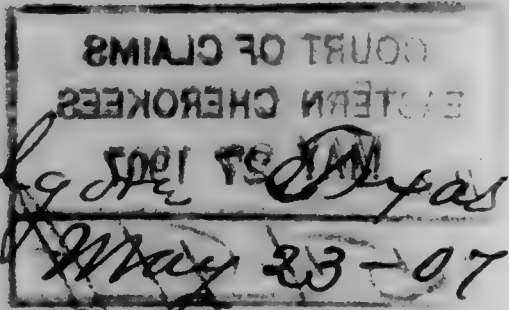 COURT OF CLAIMS
EASTERN CHEROKEES
MAY 27 1907
Texas
May 23-07